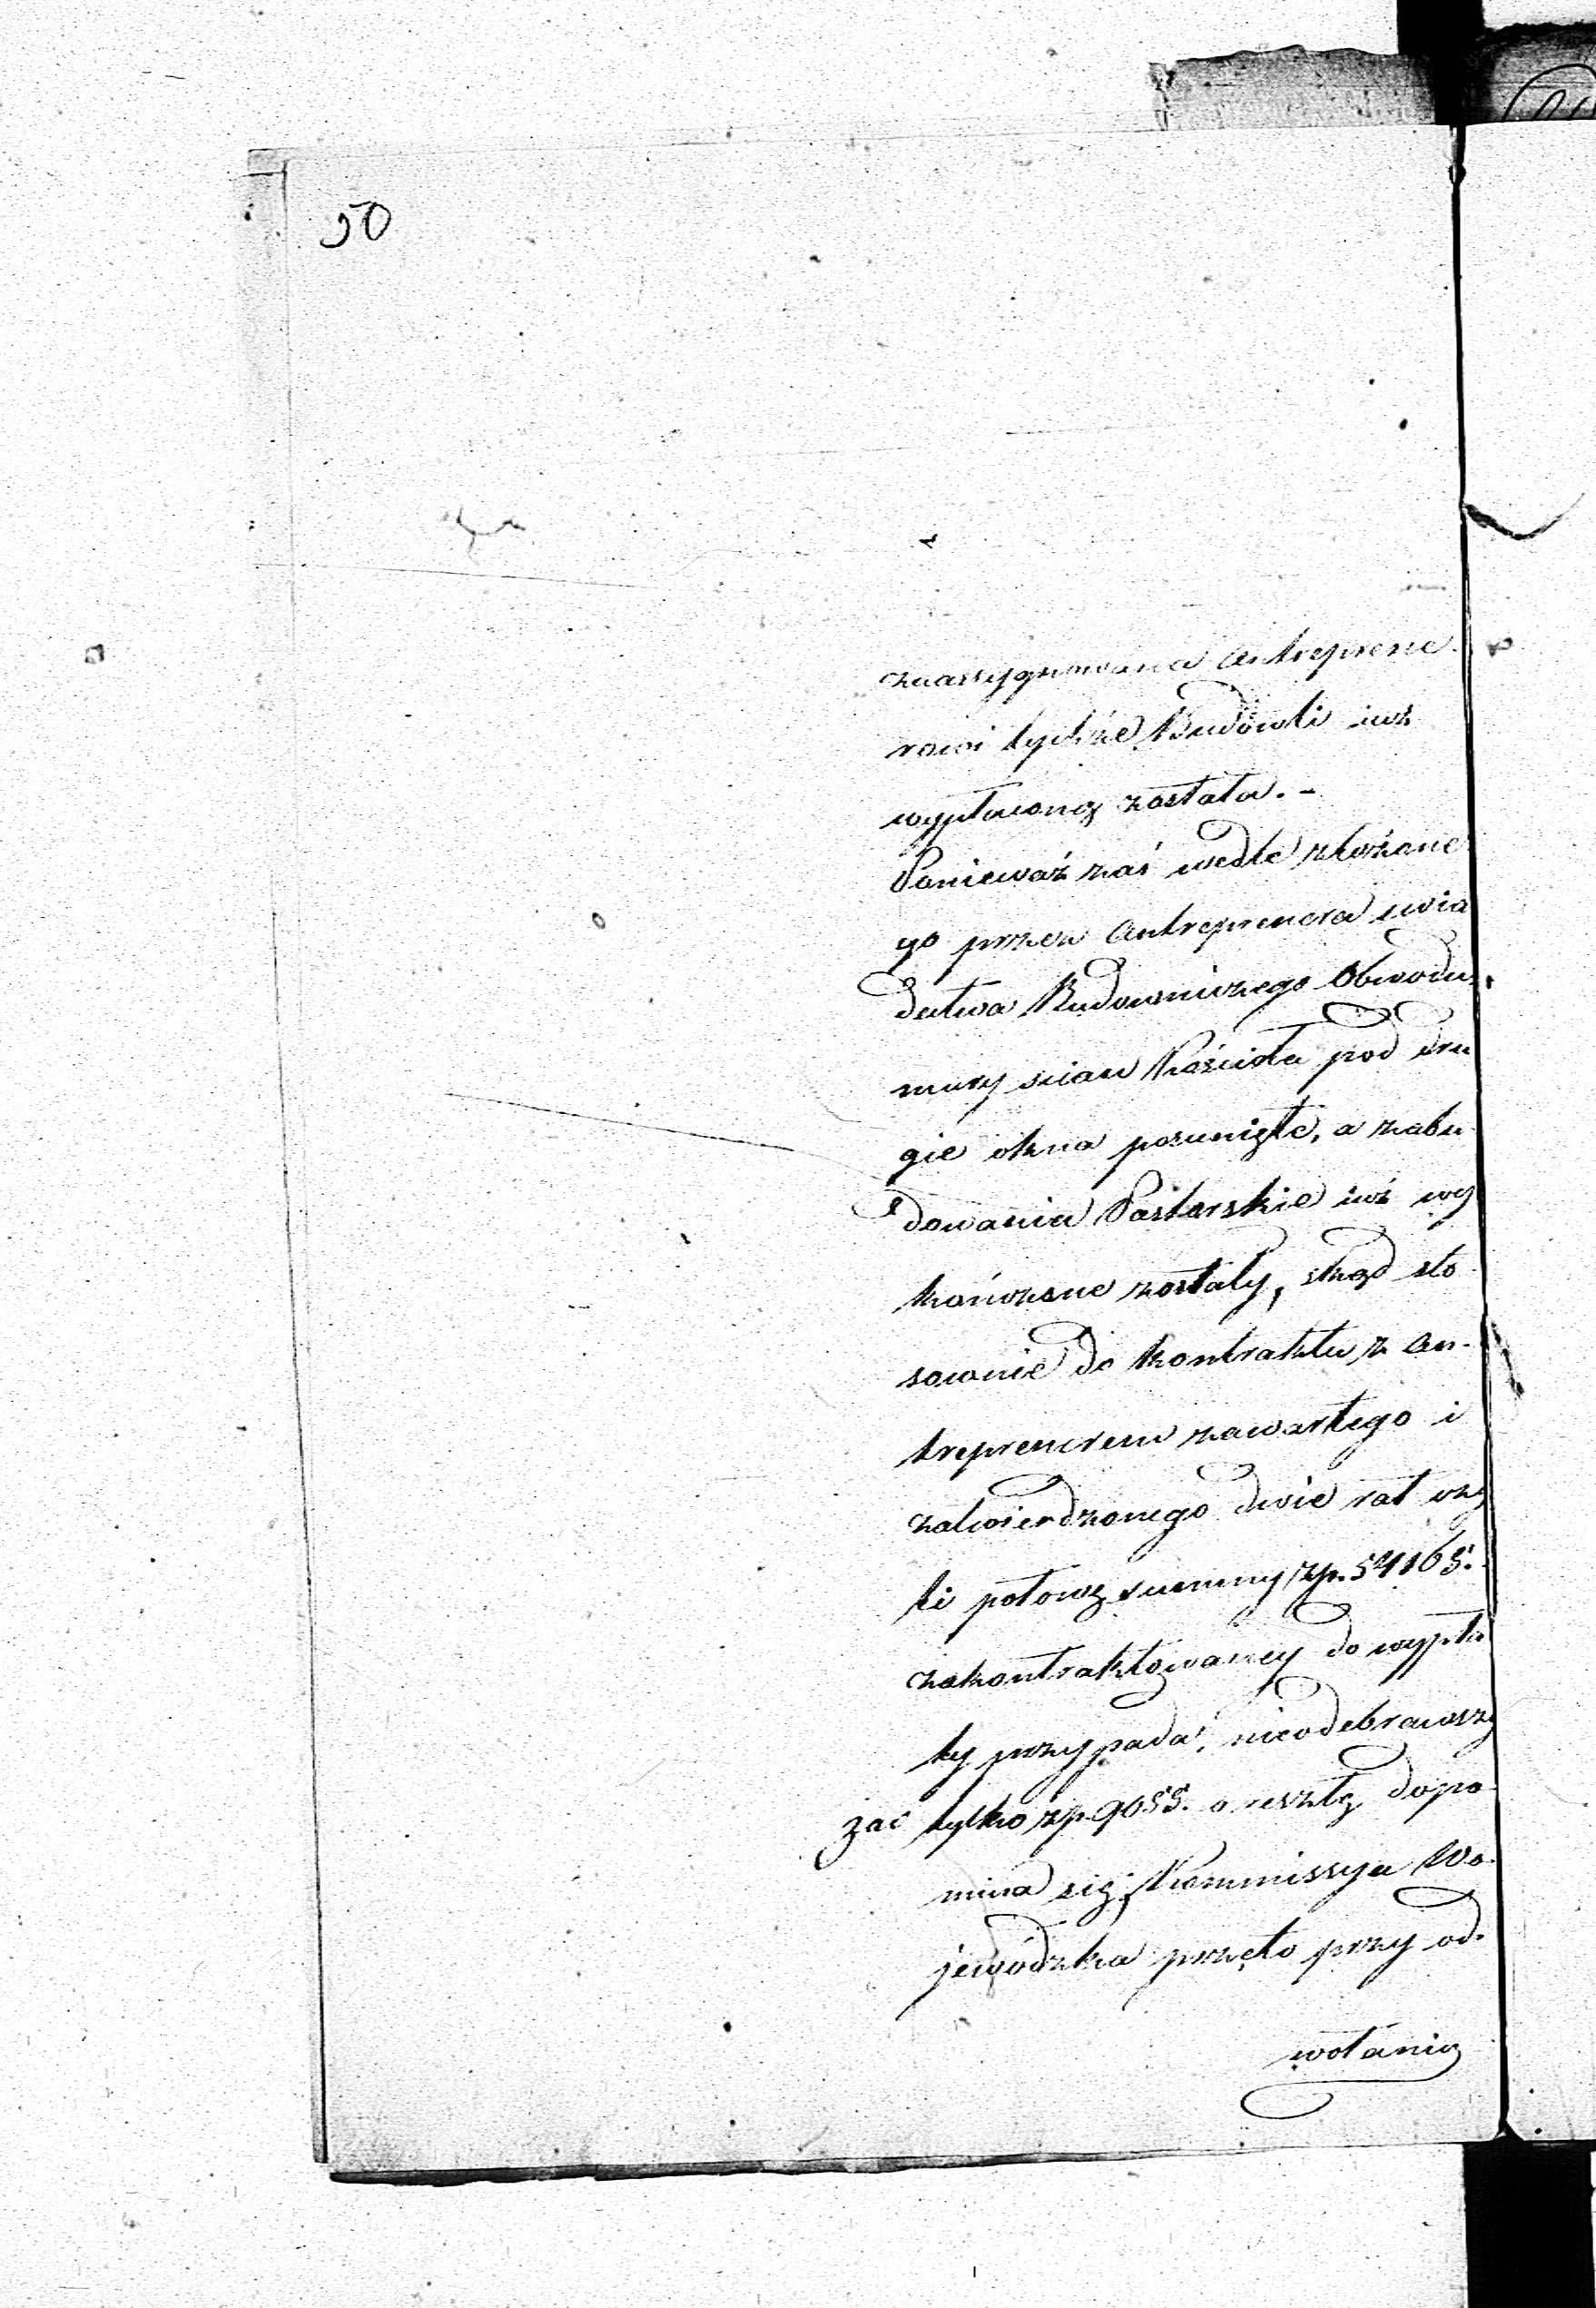 50
zaassygnowana Antreprene
rowi tychże Budowli iuż
wypłaconą została. -
Ponieważ zaś wedle złożone
go przez Antreprenera świa
dectwa Budowniczego Obwodu
mury scian Kościoła pod dru
gie okna posunięte, a zabu
dowania Pastorskie iuż wy
kończone zostały, skąd sto
sownie do kontraktu z An-
treprenerem zawartego i
zatwierdzonego dwie rat czy
li połowę summy zp. 54165.
zakontraktowaney do wypła
ty przypada, nieodebrawszy
zaś tylko zp. 9055. o resztę dopo
mina się; Kommissya Wo
jewódzka przeto przy od-
wołaniu